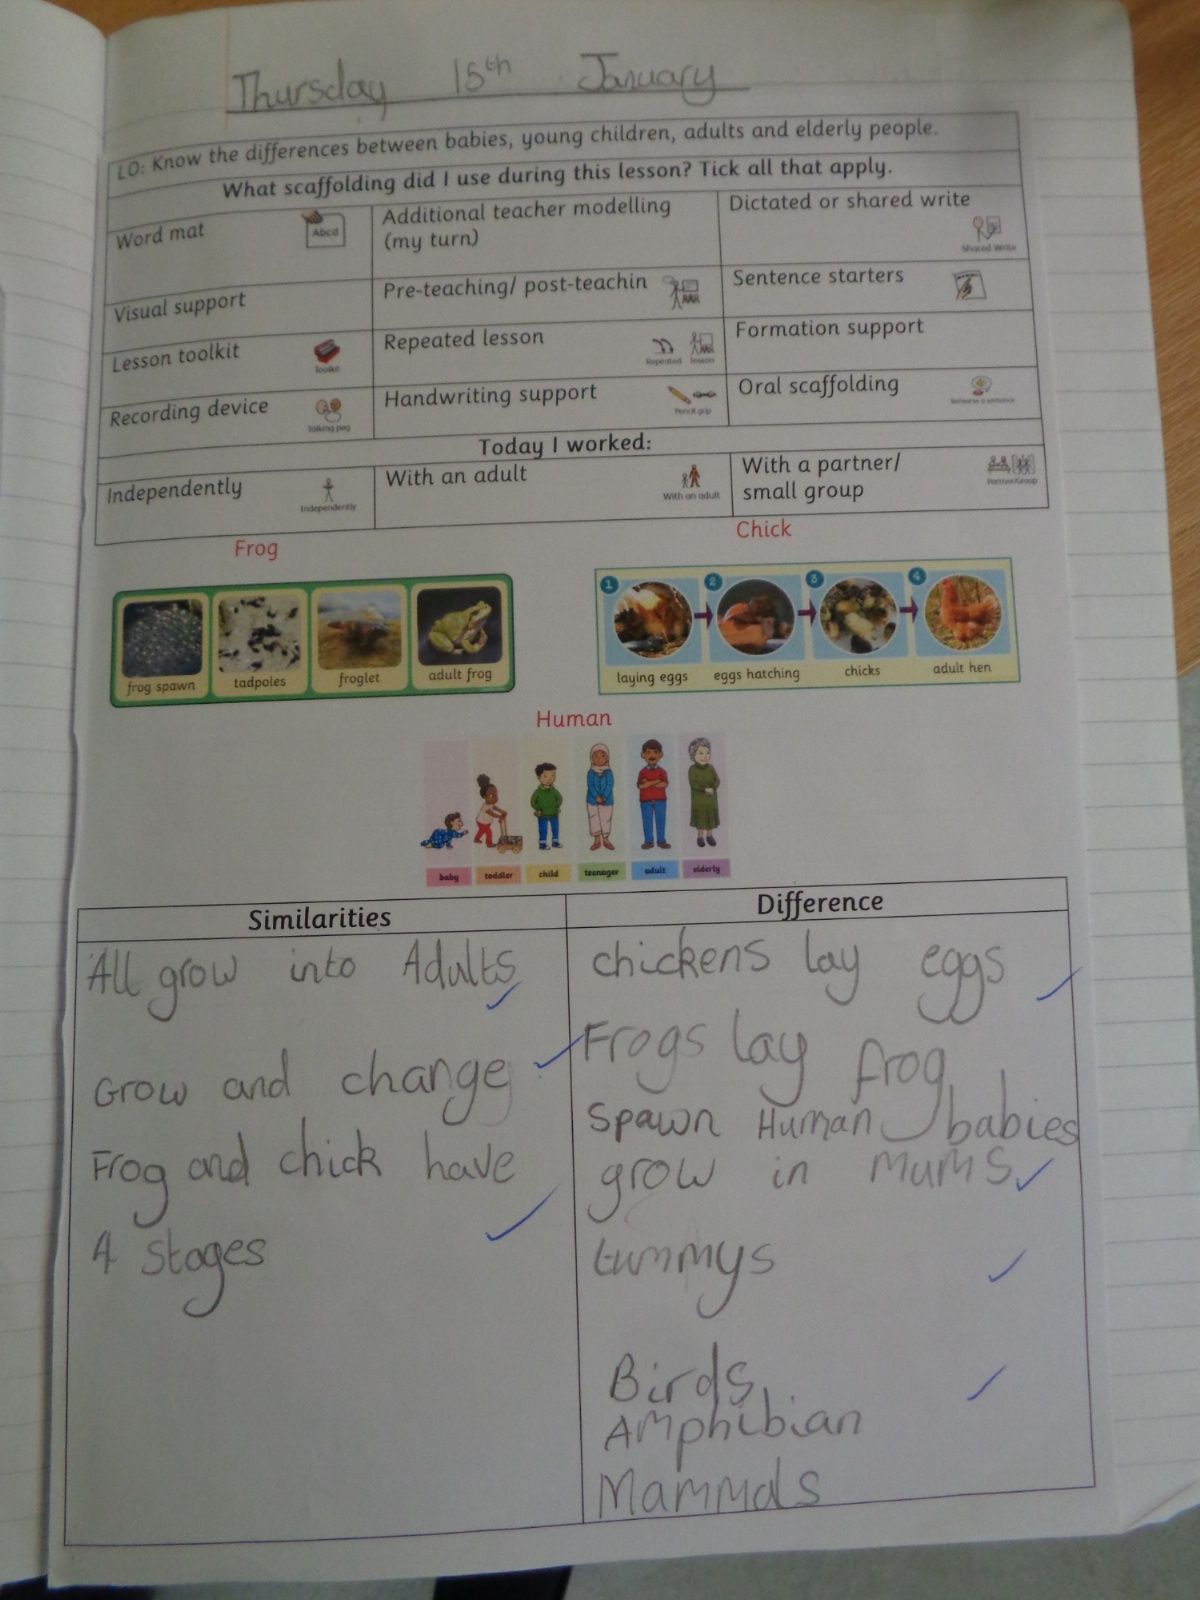 Thursday 15th January
LO: Know the differences between babies, young children, adults and elderly people.
What scaffolding did I use during this lesson? Tick all that apply.
Word mat
Abcd
Additional teacher modelling
(my turn)
Dictated or shared write
Shared Write
Visual support
Pre-teaching/ post-teachin
Sentence starters
Lesson toolkit
Toolkit
Repeated lesson
Repeated lesson
Formation support
Recording device
Talking peg
Handwriting support
Pencil grip
Oral scaffolding
Rehearse a sentence
Today I worked:
Independently
Independently
With an adult
With an adult
With a partner/
small group
Partner/Group
Frog
Chick
frog spawn
tadpoles
froglet
adult frog
1
2
3
4
laying eggs
eggs hatching
chicks
adult hen
Human
baby
toddler
child
teenager
adult
elderly
Similarities
All grow into Adults
Grow and change
Frog and chick have
4 stages
Difference
chickens lay eggs
Frogs lay frog
spawn Human babies
grow in mums
tummys
Birds
Amphibian
Mammals